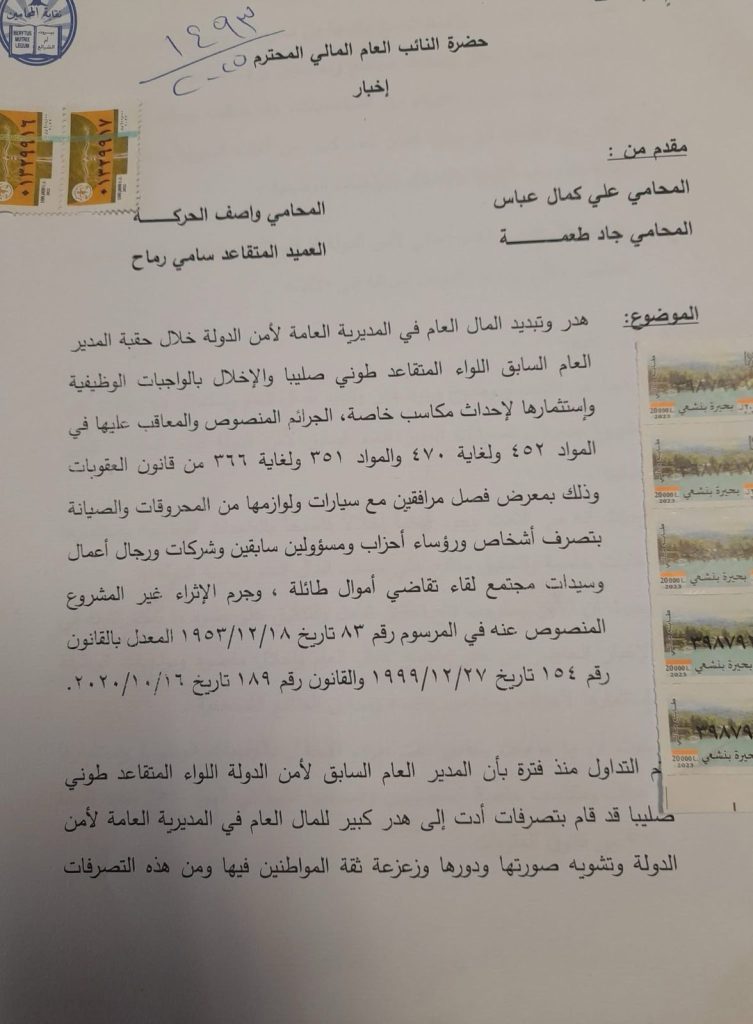 نقابة المحامين
BERYTUS
NUTRIX
LEGUM
بيروت
أم
الشرائع
١٤٩٣
حضرة النائب العام المالي المحترم
إخبار
٠١٣٢٩٩١٦
٠١٣٢٩٩١٧
مقدم من :
المحامي علي كمال عباس
المحامي واصف الحركـــــة
المحامي جاد طعمـــــــــة
العميد المتقاعد سامي رماح
الموضوع:
هدر وتبديد المال العام في المديرية العامة لأمن الدولة خلال حقبة المدير
العام السابق اللواء المتقاعد طوني صليبا والإخلال بالواجبات الوظيفية
وإستثمارها لإحداث مكاسب خاصة، الجرائم المنصوص والمعاقب عليها في
المواد ٤٥٢ ولغاية ٤٧٠ والمواد ٣٥١ ولغاية ٣٦٦ من قانون العقوبات
وذلك بمعرض فصل مرافقين مع سيارات ولوازمها من المحروقات والصيانة
بتصرف أشخاص ورؤساء أحزاب ومسؤولين سابقين وشركات ورجال أعمال
وسيدات مجتمع لقاء تقاضي أموال طائلة ، وجرم الإثراء غير المشروع
المنصوص عنه في المرسوم رقم ٨٣ تاريخ ١٩٥٣/١٢/١٨ المعدل بالقانون
رقم ١٥٤ تاريخ ١٩٩٩/١٢/٢٧ والقانون رقم ١٨٩ تاريخ ٢٠٢٠/١٠/١٦.
بحيرة بنشعي
20000 L.
2023
بحيرة بنشعي
20000 L.
2023
بحيرة بنشعي
20000 L.
2023
بحيرة بنشعي
20000 L.
2023
بحيرة بنشعي
20000 L.
2023
التداول منذ فترة بأن المدير العام السابق لأمن الدولة اللواء المتقاعد طوني
صليبا قد قام بتصرفات أدت إلى هدر كبير للمال العام في المديرية العامة لأمن
الدولة وتشويه صورتها ودورها وزعزعة ثقة المواطنين فيها ومن هذه التصرفات